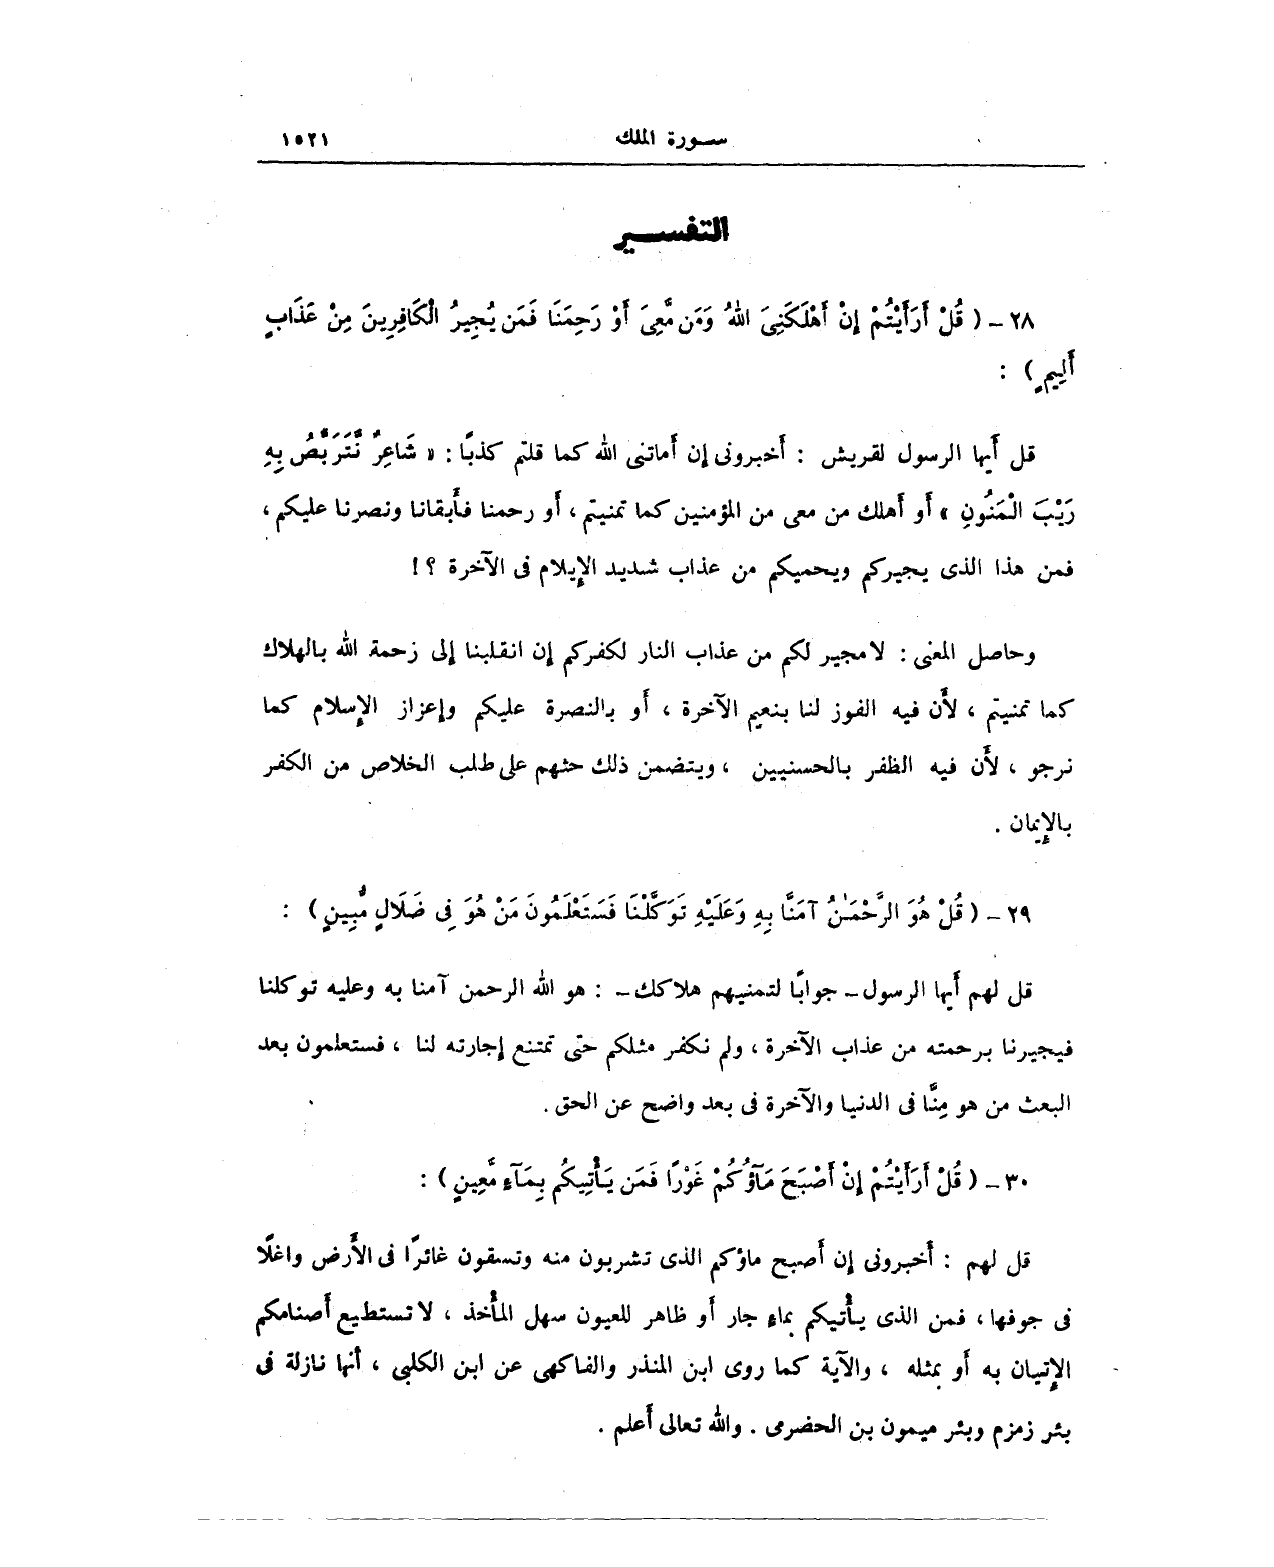 سورة الملك ١٥٢١
التفسير
٢٨ - ( قُلْ أَرَأَيْتُمْ إِنْ أَهْلَكَنِىَ اللهُ وَمَن مَّعِىَ أَوْ رَحِمَنَا فَمَن يُجِيرُ الْكَافِرِينَ مِنْ عَذَابٍ
أَلِيمٍ ) :
قل أيها الرسول لقريش : أخبرونى إن أماتنى الله كما قلتم كذبًا : « شَاعِرٌ نَّتَرَبَّصُ بِهِ
رَيْبَ الْمَنُونِ » أو أهلك من معى من المؤمنين كما تمنيتم ، أو رحمنا فأبقانا ونصرنا عليكم ،
فمن هذا الذى يجيركم ويحميكم من عذاب شديد الإيلام فى الآخرة ؟ !
وحاصل المعنى : لا مجير لكم من عذاب النار لكفركم إن انقلبنا إلى رحمة الله بالهلاك
كما تمنيتم ، لأن فيه الفوز لنا بنعيم الآخرة ، أو بالنصرة عليكم وإعزاز الإسلام كما
نرجو ، لأن فيه الظفر بالحسنيين ، ويتضمن ذلك حثهم على طلب الخلاص من الكفر
بالإيمان .
٢٩ - ( قُلْ هُوَ الرَّحْمَٰنُ آمَنَّا بِهِ وَعَلَيْهِ تَوَكَّلْنَا فَسَتَعْلَمُونَ مَنْ هُوَ فِى ضَلَالٍ مُّبِينٍ ) :
قل لهم أيها الرسول - جوابًا لتمنيهم هلاكك - : هو الله الرحمن آمنا به وعليه توكلنا
فيجيرنا برحمته من عذاب الآخرة ، ولم نكفر مثلكم حتى تمتنع إجارته لنا ، فستعلمون بعد
البعث من هو مِنَّا فى الدنيا والآخرة فى بعد واضح عن الحق .
٣٠ - ( قُلْ أَرَأَيْتُمْ إِنْ أَصْبَحَ مَآؤُكُمْ غَوْرًا فَمَن يَأْتِيكُم بِمَآءٍ مَّعِينٍ ) :
قل لهم : أخبرونى إن أصبح ماؤكم الذى تشربون منه وتسقون غائرًا فى الأرض واغلًا
فى جوفها ، فمن الذى يأتيكم بماء جار أو ظاهر للعيون سهل المأخذ ، لا تستطيع أصنامكم
الإتيان به أو بمثله ، والآية كما روى ابن المنذر والفاكهى عن ابن الكلبى ، أنها نازلة فى
بئر زمزم وبئر ميمون بن الحضرمى . والله تعالى أعلم .